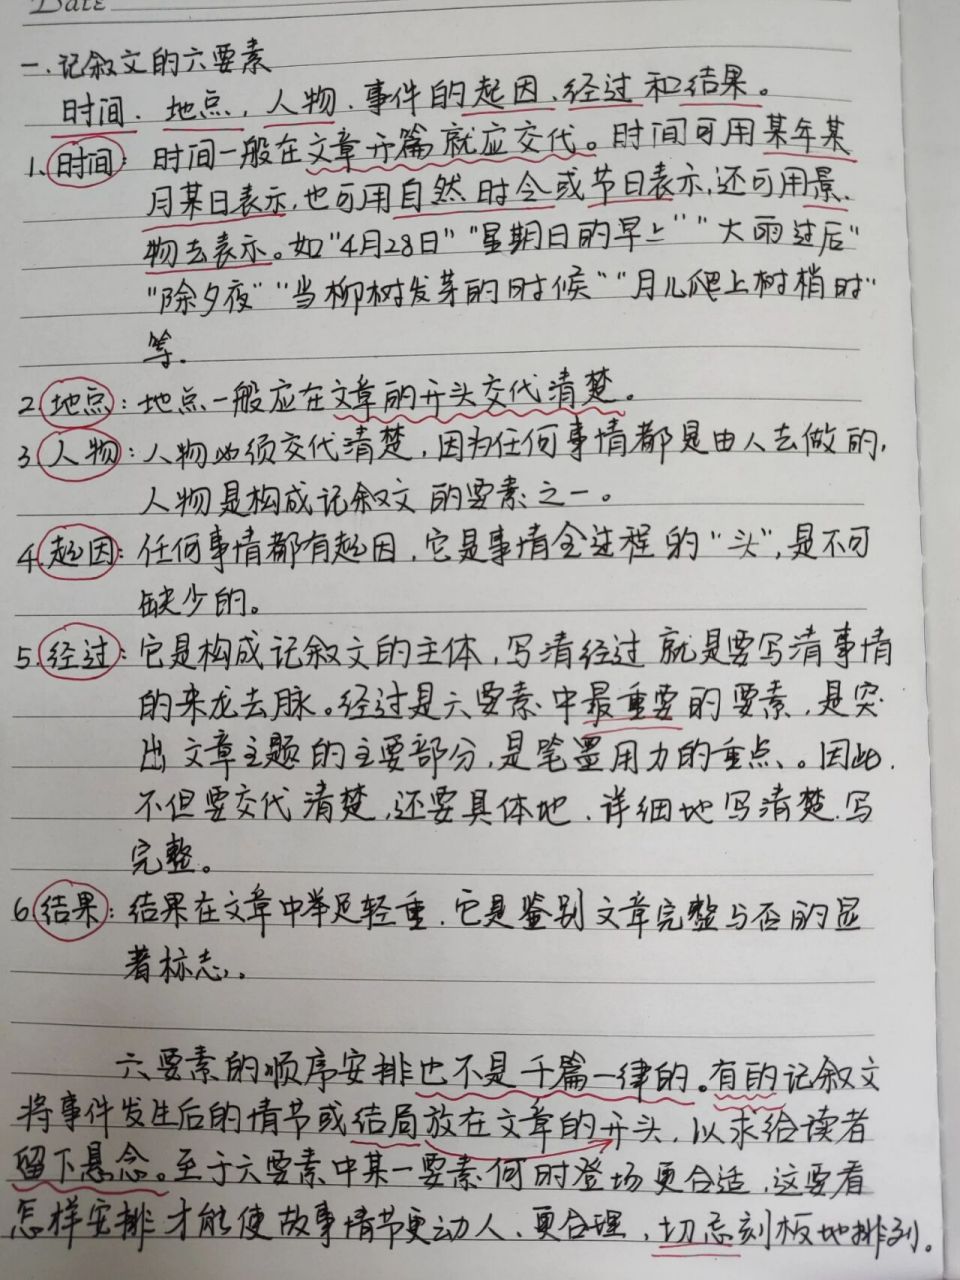 Date
一.记叙文的六要素
时间、地点、人物、事件的起因、经过和结果。
1.时间:时间一般在文章开篇就应交代。时间可用某年某
月某日表示,也可用自然时令或节日表示,还可用景
物去表示。如"4月28日""星期日的早上""大雨过后"
"除夕夜""当柳树发芽的时候""月儿爬上树梢时"
等。
2.地点:地点一般应在文章的开头交代清楚。
3.人物:人物必须交代清楚,因为任何事情都是由人去做的,
人物是构成记叙文的要素之一。
4.起因:任何事情都有起因,它是事情全过程的"头",是不可
缺少的。
5.经过:它是构成记叙文的主体,写清经过就是要写清事情
的来龙去脉。经过是六要素中最重要的要素,是突
出文章主题的主要部分,是笔墨用力的重点。因此,
不但要交代清楚,还要具体地、详细地写清楚、写
完整。
6.结果:结果在文章中举足轻重,它是鉴别文章完整与否的显
著标志。
六要素的顺序安排也不是千篇一律的。有的记叙文
将事件发生后的情节或结局放在文章的开头,以求给读者
留下悬念。至于六要素中某一要素何时登场更合适,这要看
怎样安排才能使故事情节更动人、更合理,切忌刻板地排列。